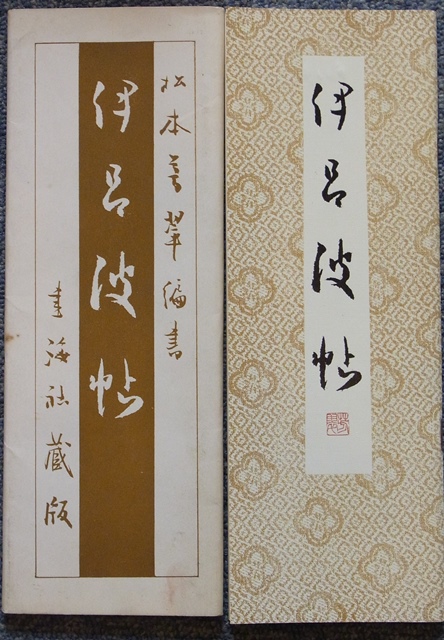 松本芳翠編書
伊呂波帖
書海社藏版
伊呂波帖
芳翠